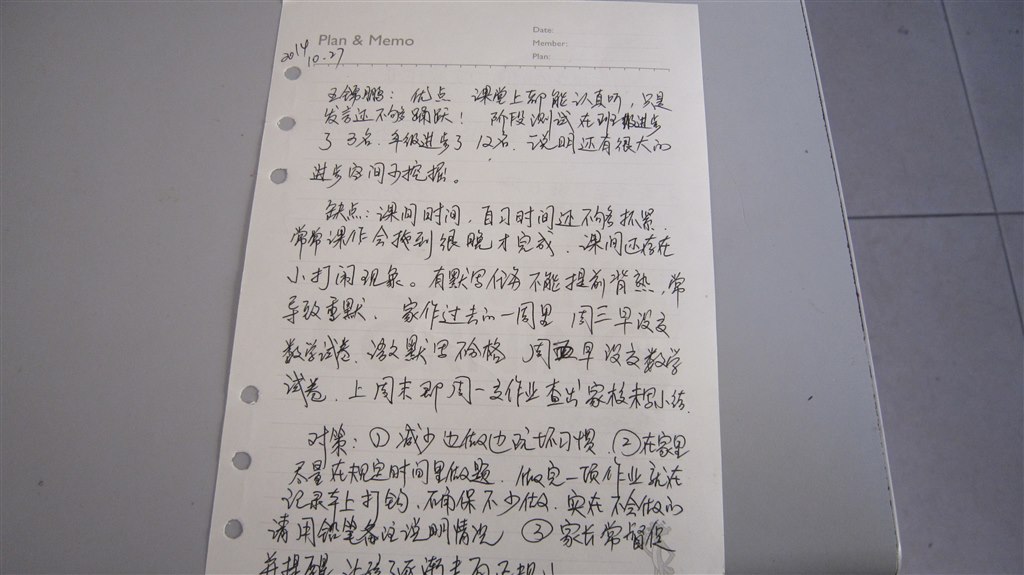 Plan & Memo
Date:
Member:
Plan:
2014
10-27
王锦鹏：优点 课堂上都能认真听，只是
发言还不够踊跃！ 阶段测试在班级进步
了3名.年级进步了12名.说明还有很大的
进步空间可挖掘。
缺点：课间时间，自习时间还不够抓紧.
常常课作会拖到很晚才完成.课间还存在
小打闹现象。有默写任务不能提前背熟，常
导致重默. 家作过去的一周里 周三早没交
数学试卷.语文默写不合格 周五早没交数学
试卷. 上周末即周一交作业查出家校未写小练.
对策：①减少边做边玩坏习惯.②在家里
尽量在规定时间里做题.做完一项作业就在
记录本上打钩.确保不少做.实在不会做的
请用铅笔备注说明情况 ③家长常督促
并提醒.让孩子逐渐走向正规！